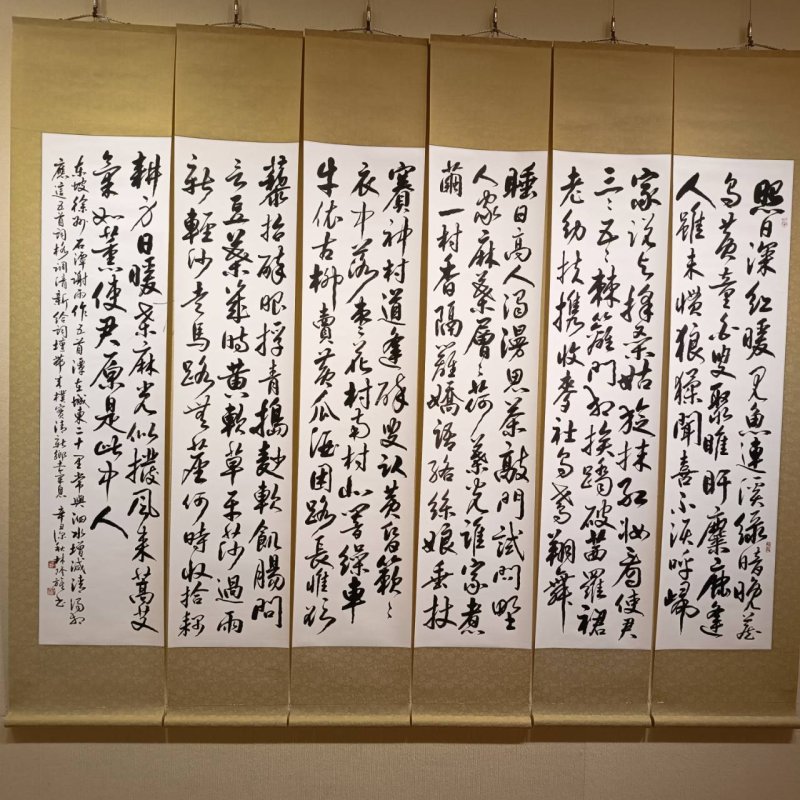 照日深紅暖见魚連溪綠暗晚藏
烏黄童白叟聚睢盱麋鹿逢
人雖未慣猿猱聞喜不須呼歸
家说与採桑姑旋抹红妆看使君
三三五五棘籬門相挨踏破茜羅裙
老幼扶攜收麥社烏鳶翔舞
賽神村道逢醉叟卧黄昏簌簌
衣巾落棗花村南村北響繰車
牛依古柳賣黄瓜酒困路長惟欲
睡日高人渴漫思茶敲門試問野
人家麻葉層層苘葉光誰家煮
繭一村香隔籬嬌語絡絲娘垂杖
藜抬醉眼捋青搗麨軟飢腸問
言豆葉幾時黄軟草平莎過雨
新輕沙走馬路無塵何時收拾耦
耕身日暖桑麻光似潑風来蒿艾
氣如薰使君原是此中人
东坡徐州石潭謝雨作五首潭在城東二十里常與泗水增減清濁相
應這五首詞格調清新给詞壇带来樸實清新鄉土氣息 辛丑深秋林修書